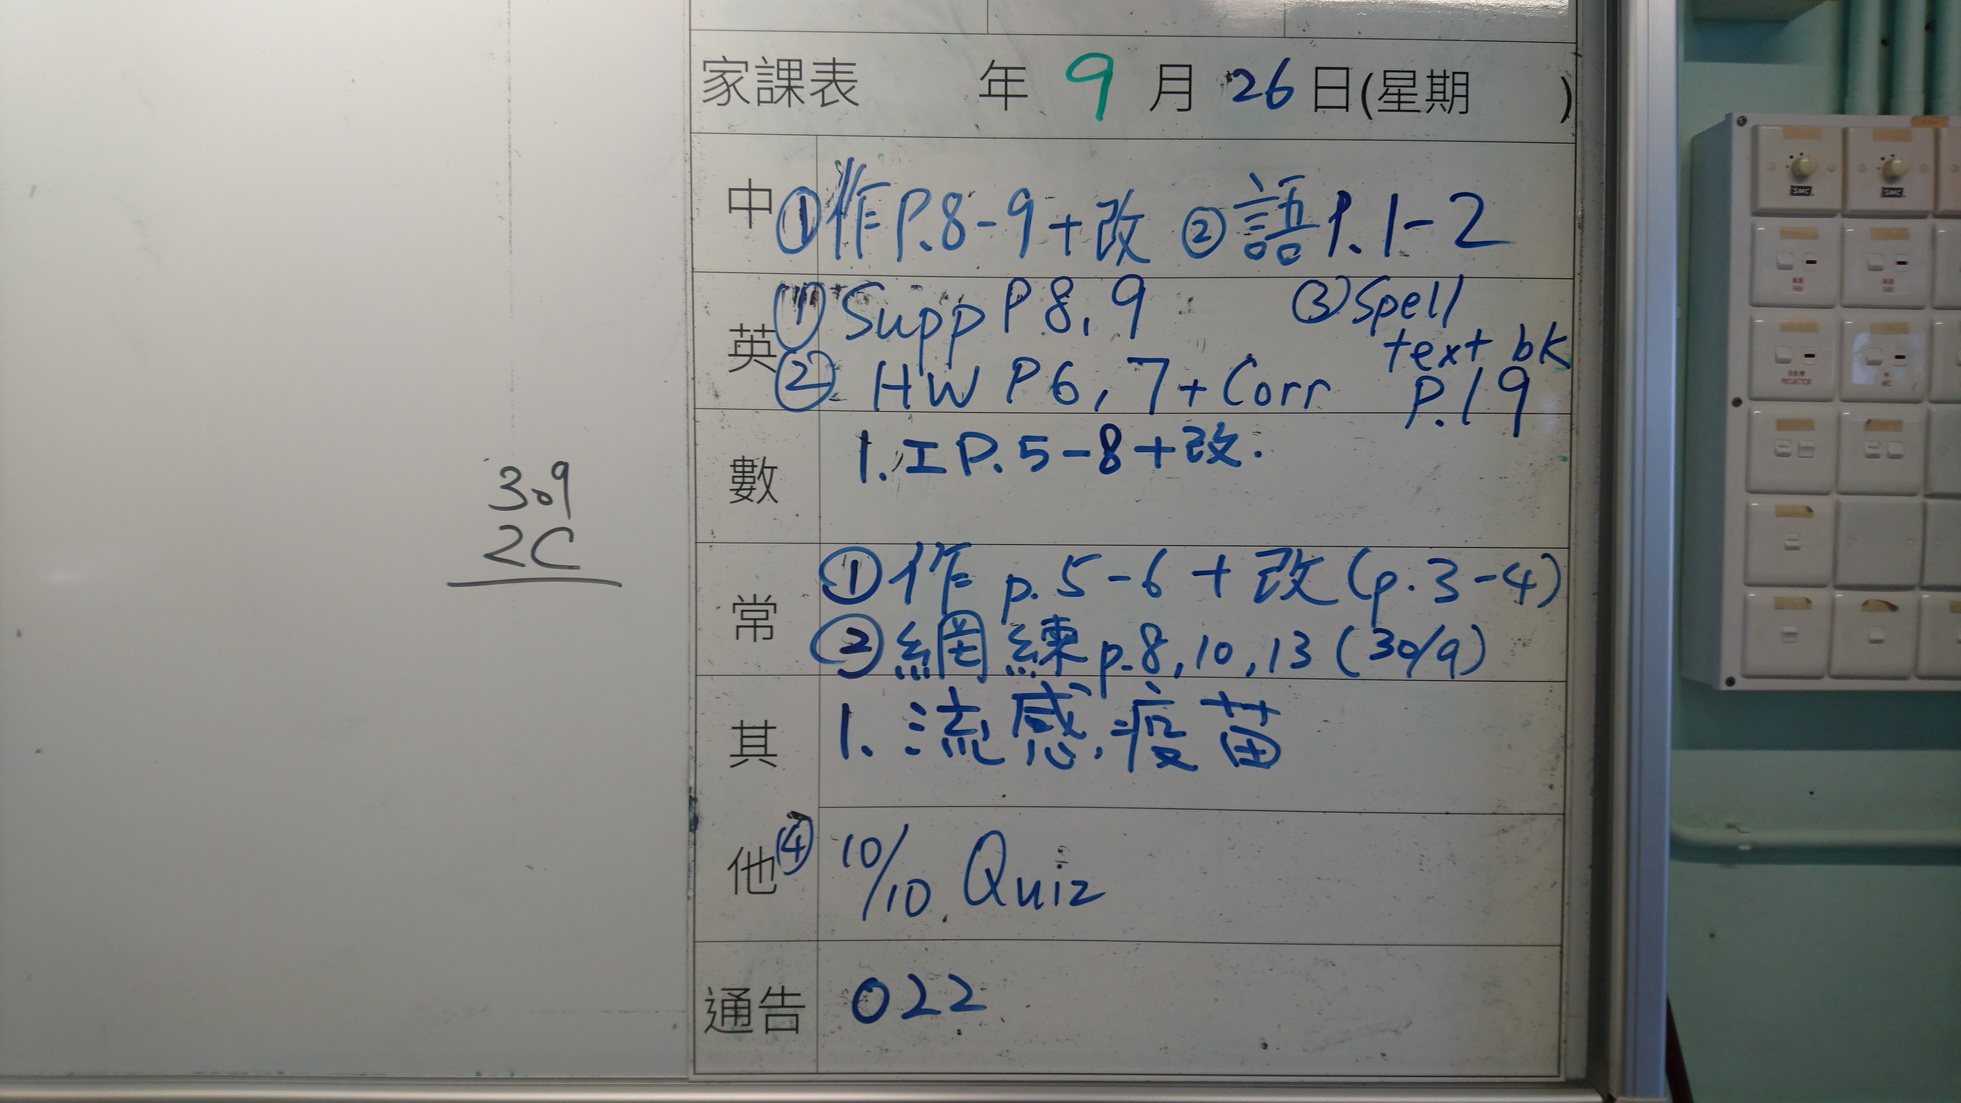 家課表 年 9 月 26 日(星期 )
中 ①作P.8-9+改 ②語P.1-2
英 ① Supp P8,9 ③Spell
text bk
P.19
② HW P6,7+Corr
數 1.工P.5-8+改.
常 ①作 p.5-6+改(p.3-4)
②網練p.8,10,13(30/9)
其他
1. 流感疫苗
④ 10/10 Quiz
通告 022
3.9
2C
SMC
SMC
PROJECTOR